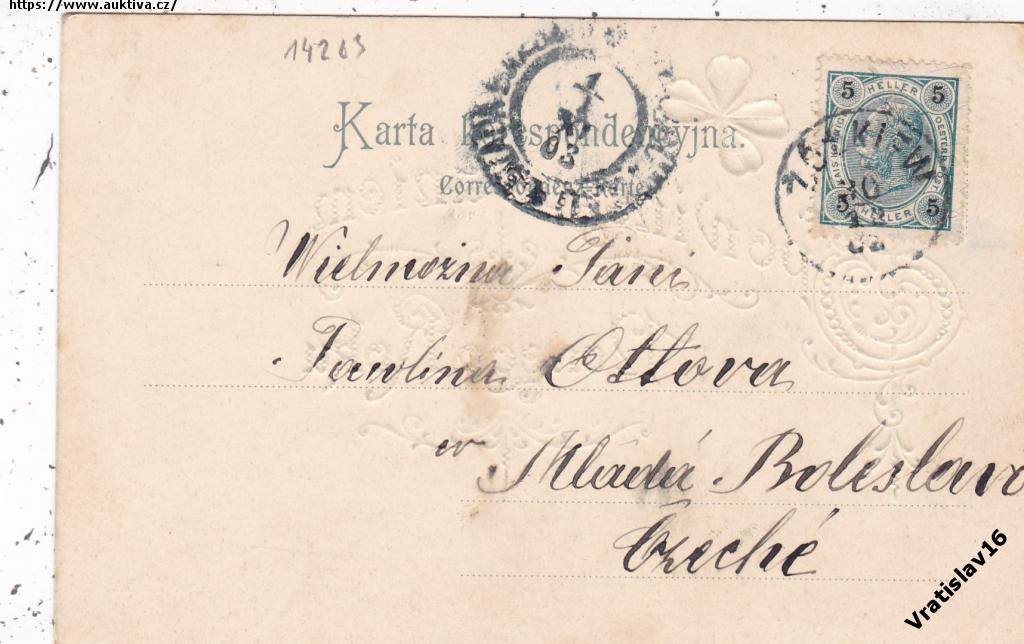 https://www.auktiva.cz/
14203
Karta korespondencyjna.
Correspondenz-Karte
5 HELLER 5
KAIS. KÖNIGL. OESTERR. POST
5 HELLER 5
10
Wielmożna Pani
Pawlina Ottova
w Mladá Boleslav
Czeché
Vratislav16